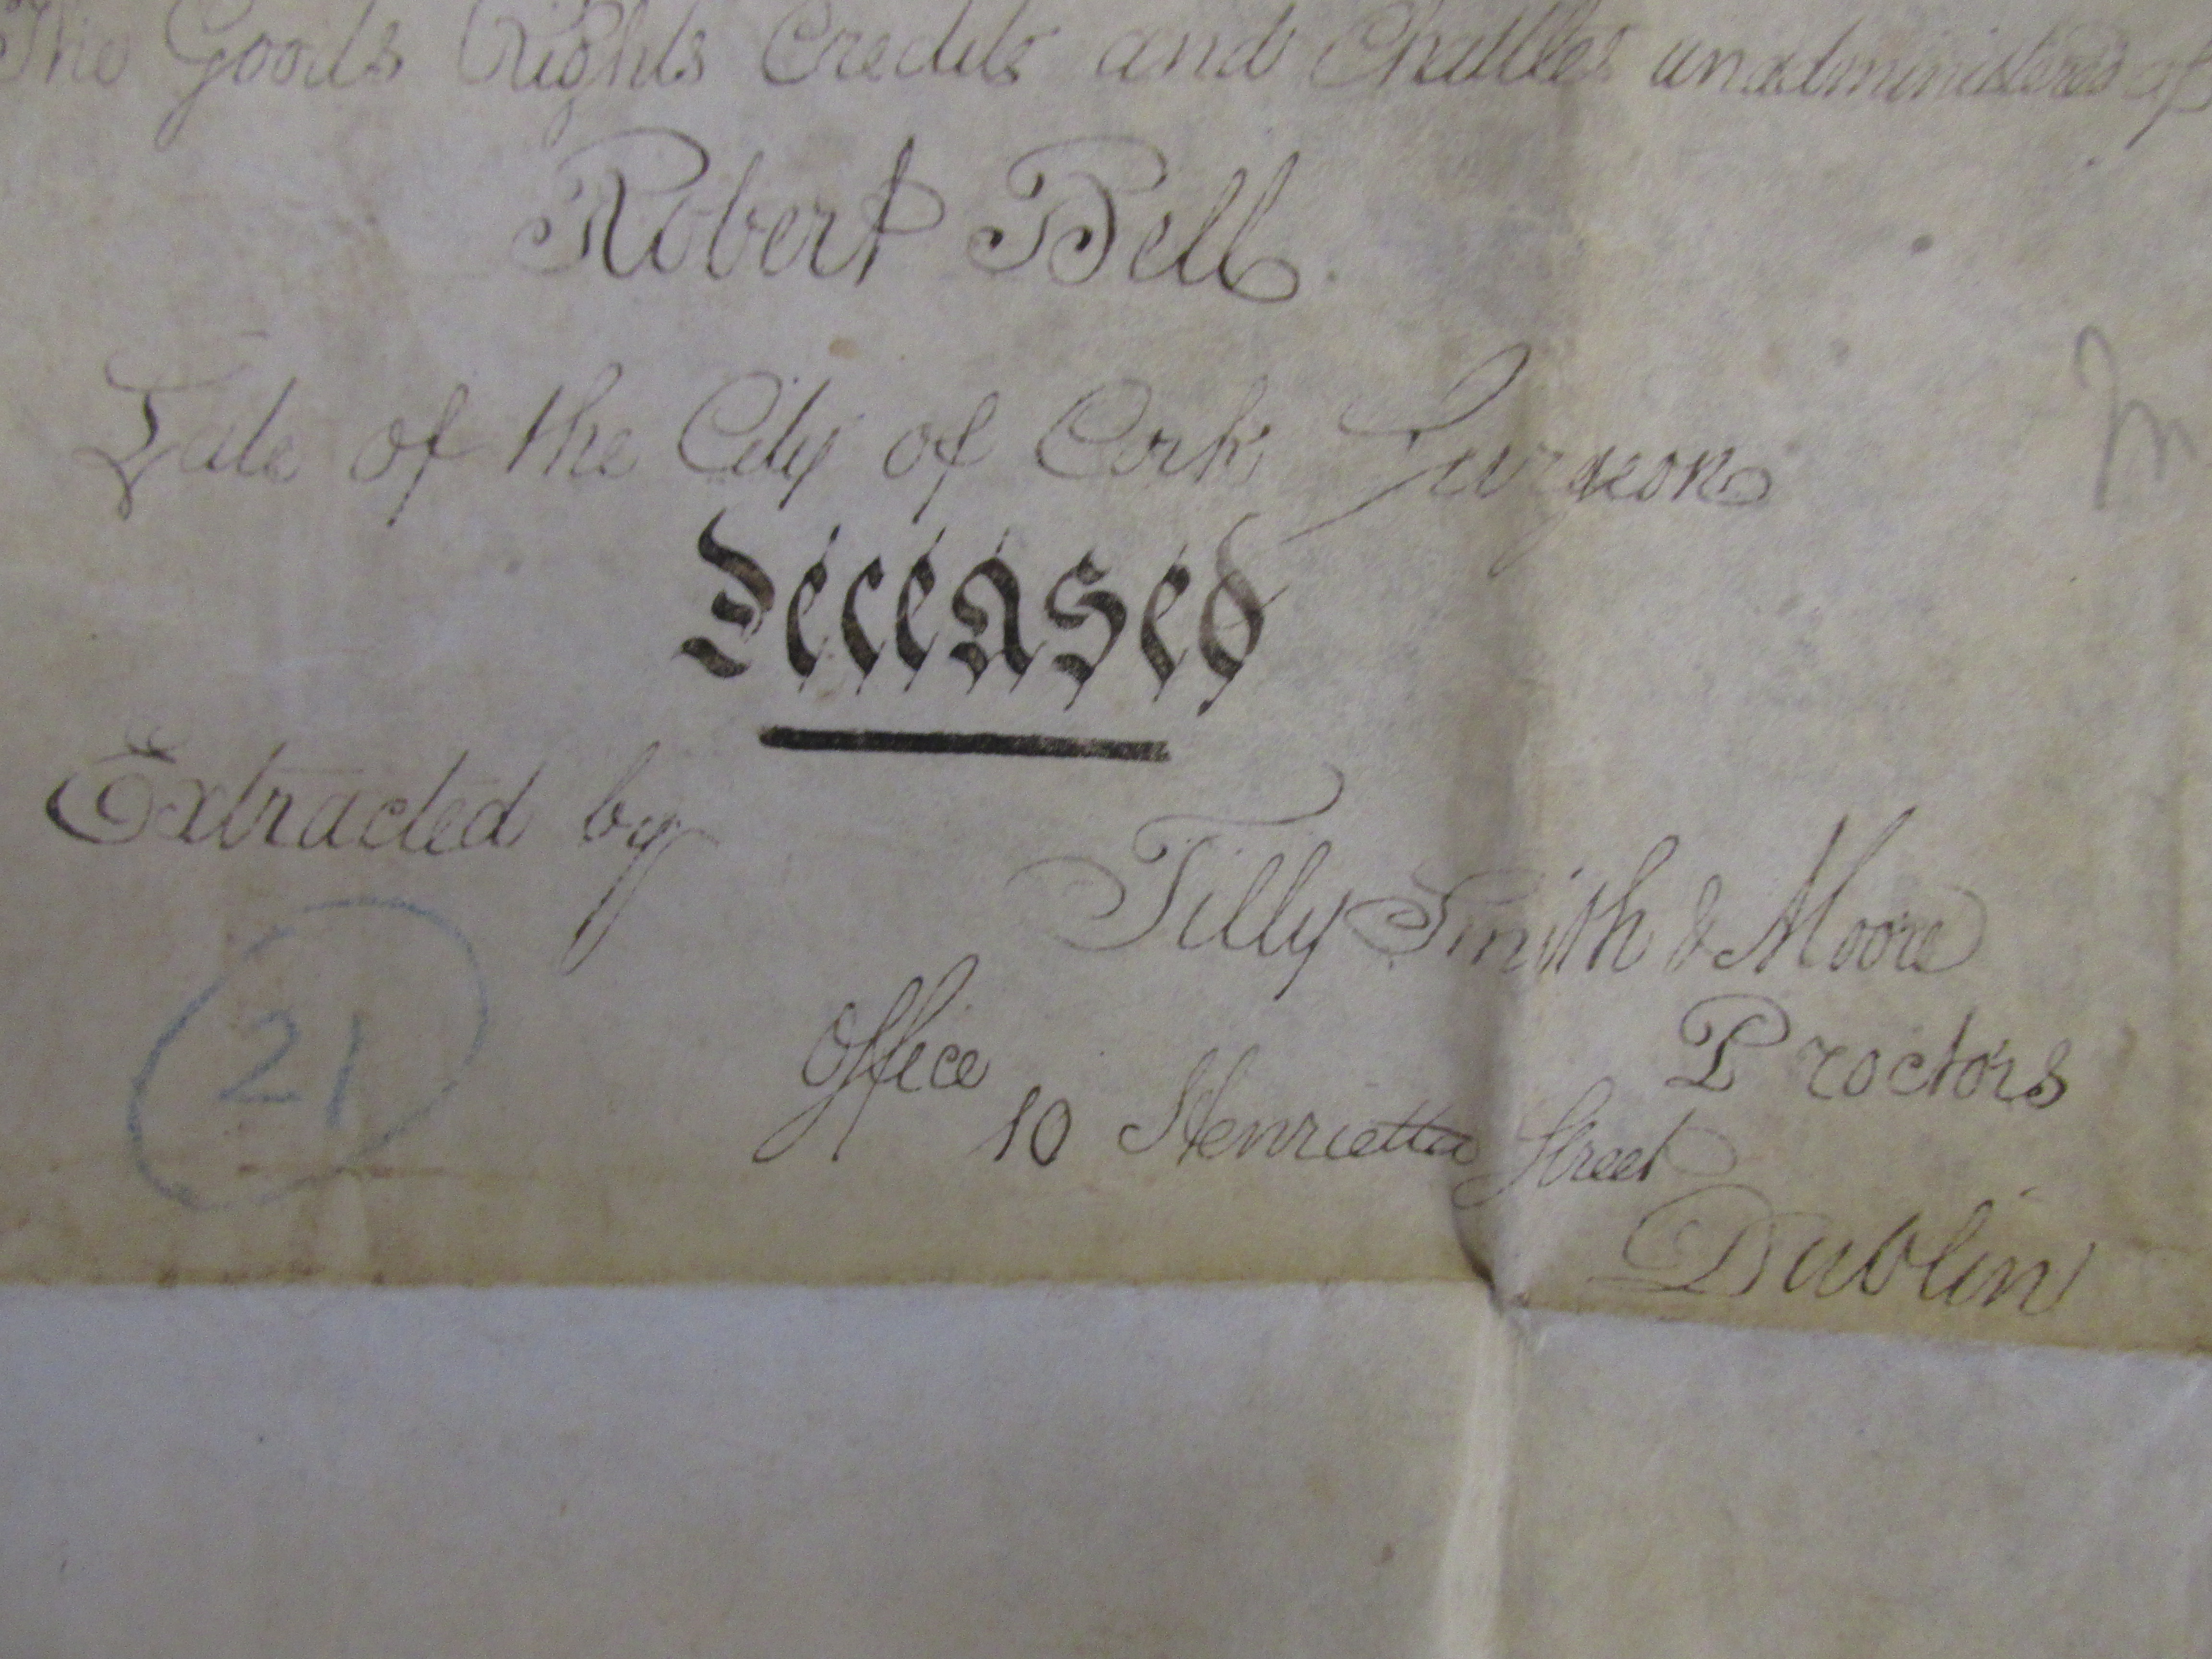 The Goods Rights Credits and Chattles unadministered of
Robert Bell.
Late of the City of Cork Surgeon
Deceased
Extracted by
Tilly Smith & Moore
Proctors
Office
10 Henrietta Street
Dublin
21